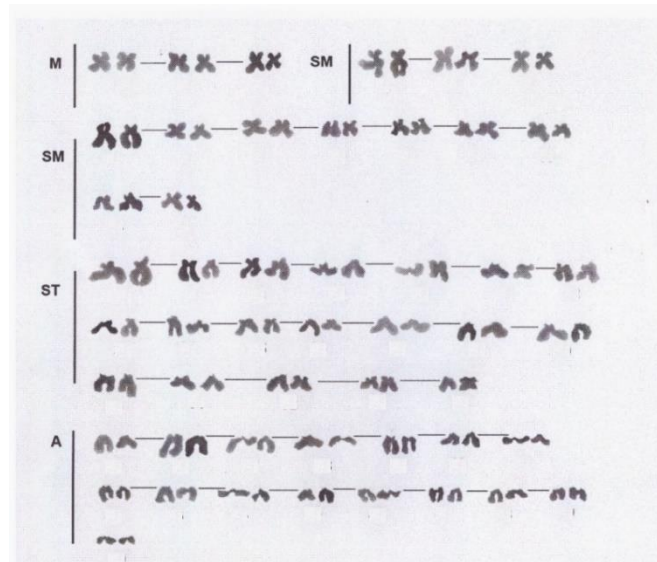 M SM
SM
ST
A